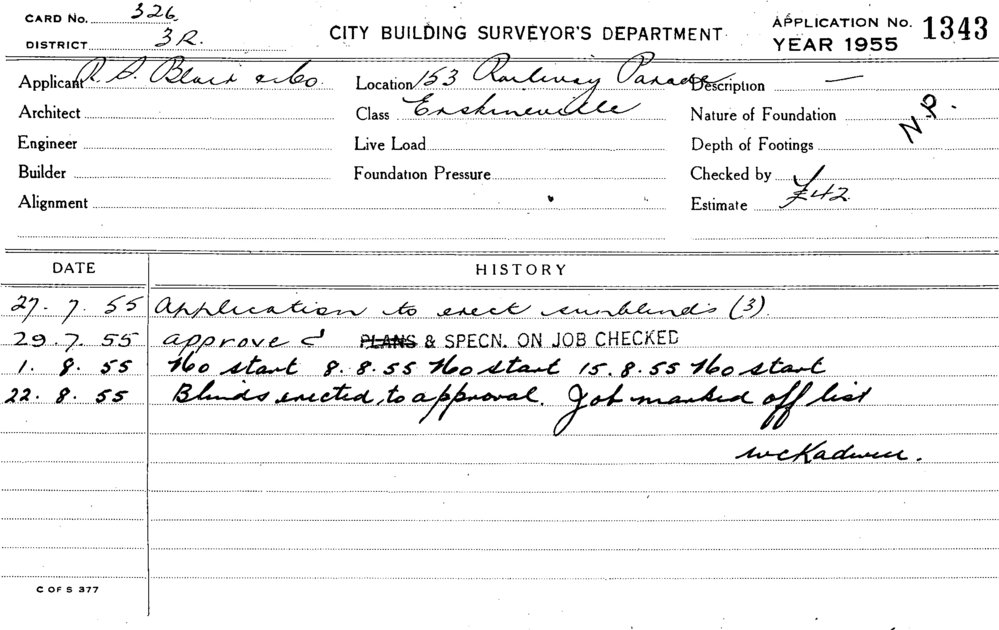 CARD No. 326
DISTRICT 3R.
CITY BUILDING SURVEYOR'S DEPARTMENT
APPLICATION No. 1343
YEAR 1955
Applicant R. S. Blair & Co Location 153 Railway Parade Description —
Architect Class Erskineville Nature of Foundation N.P.
Engineer Live Load Depth of Footings
Builder Foundation Pressure Checked by
Alignment Estimate £42
DATE HISTORY
27. 7. 55 Application to erect sunblinds (3)
29. 7. 55 approved PLANS & SPECN. ON JOB CHECKED
1. 8. 55 No start 8. 8. 55 No start 15. 8. 55 No start
22. 8. 55 Blinds erected, to approval. Job marked off list
C OF S 377